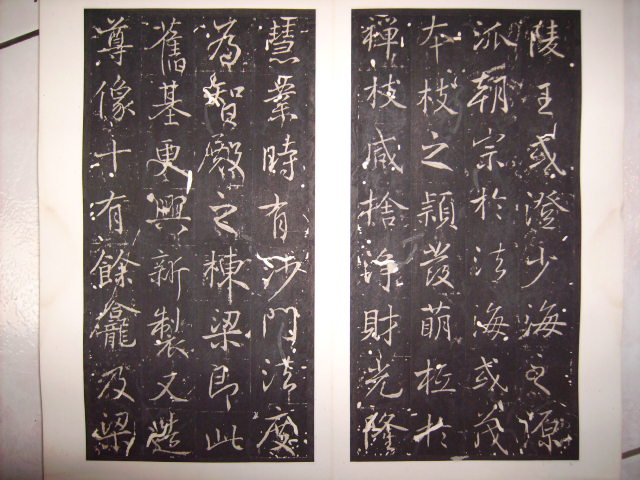 陵王或澄少海之源
派朝宗於法海或茂
本枝之穎發萌柢於
禪枝咸捨淨財光隆
慧業時有沙門法度
為智殿之棟梁即此
舊基更興新製又造
尊像十有餘龕及梁